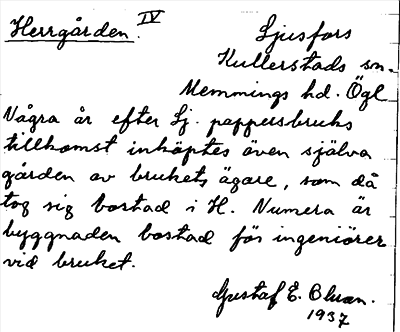 Herrgården. IV
Ljusfors
Kullerstads sn.
Memmings hd. Ögl
Några år efter Lj. pappersbruks
tillkomst inköptes även själva
gården av brukets ägare, som då
tog sig bostad i H. Numera är
byggnaden bostad för ingeniörer
vid bruket.
Gustaf E. Bluan.
1937